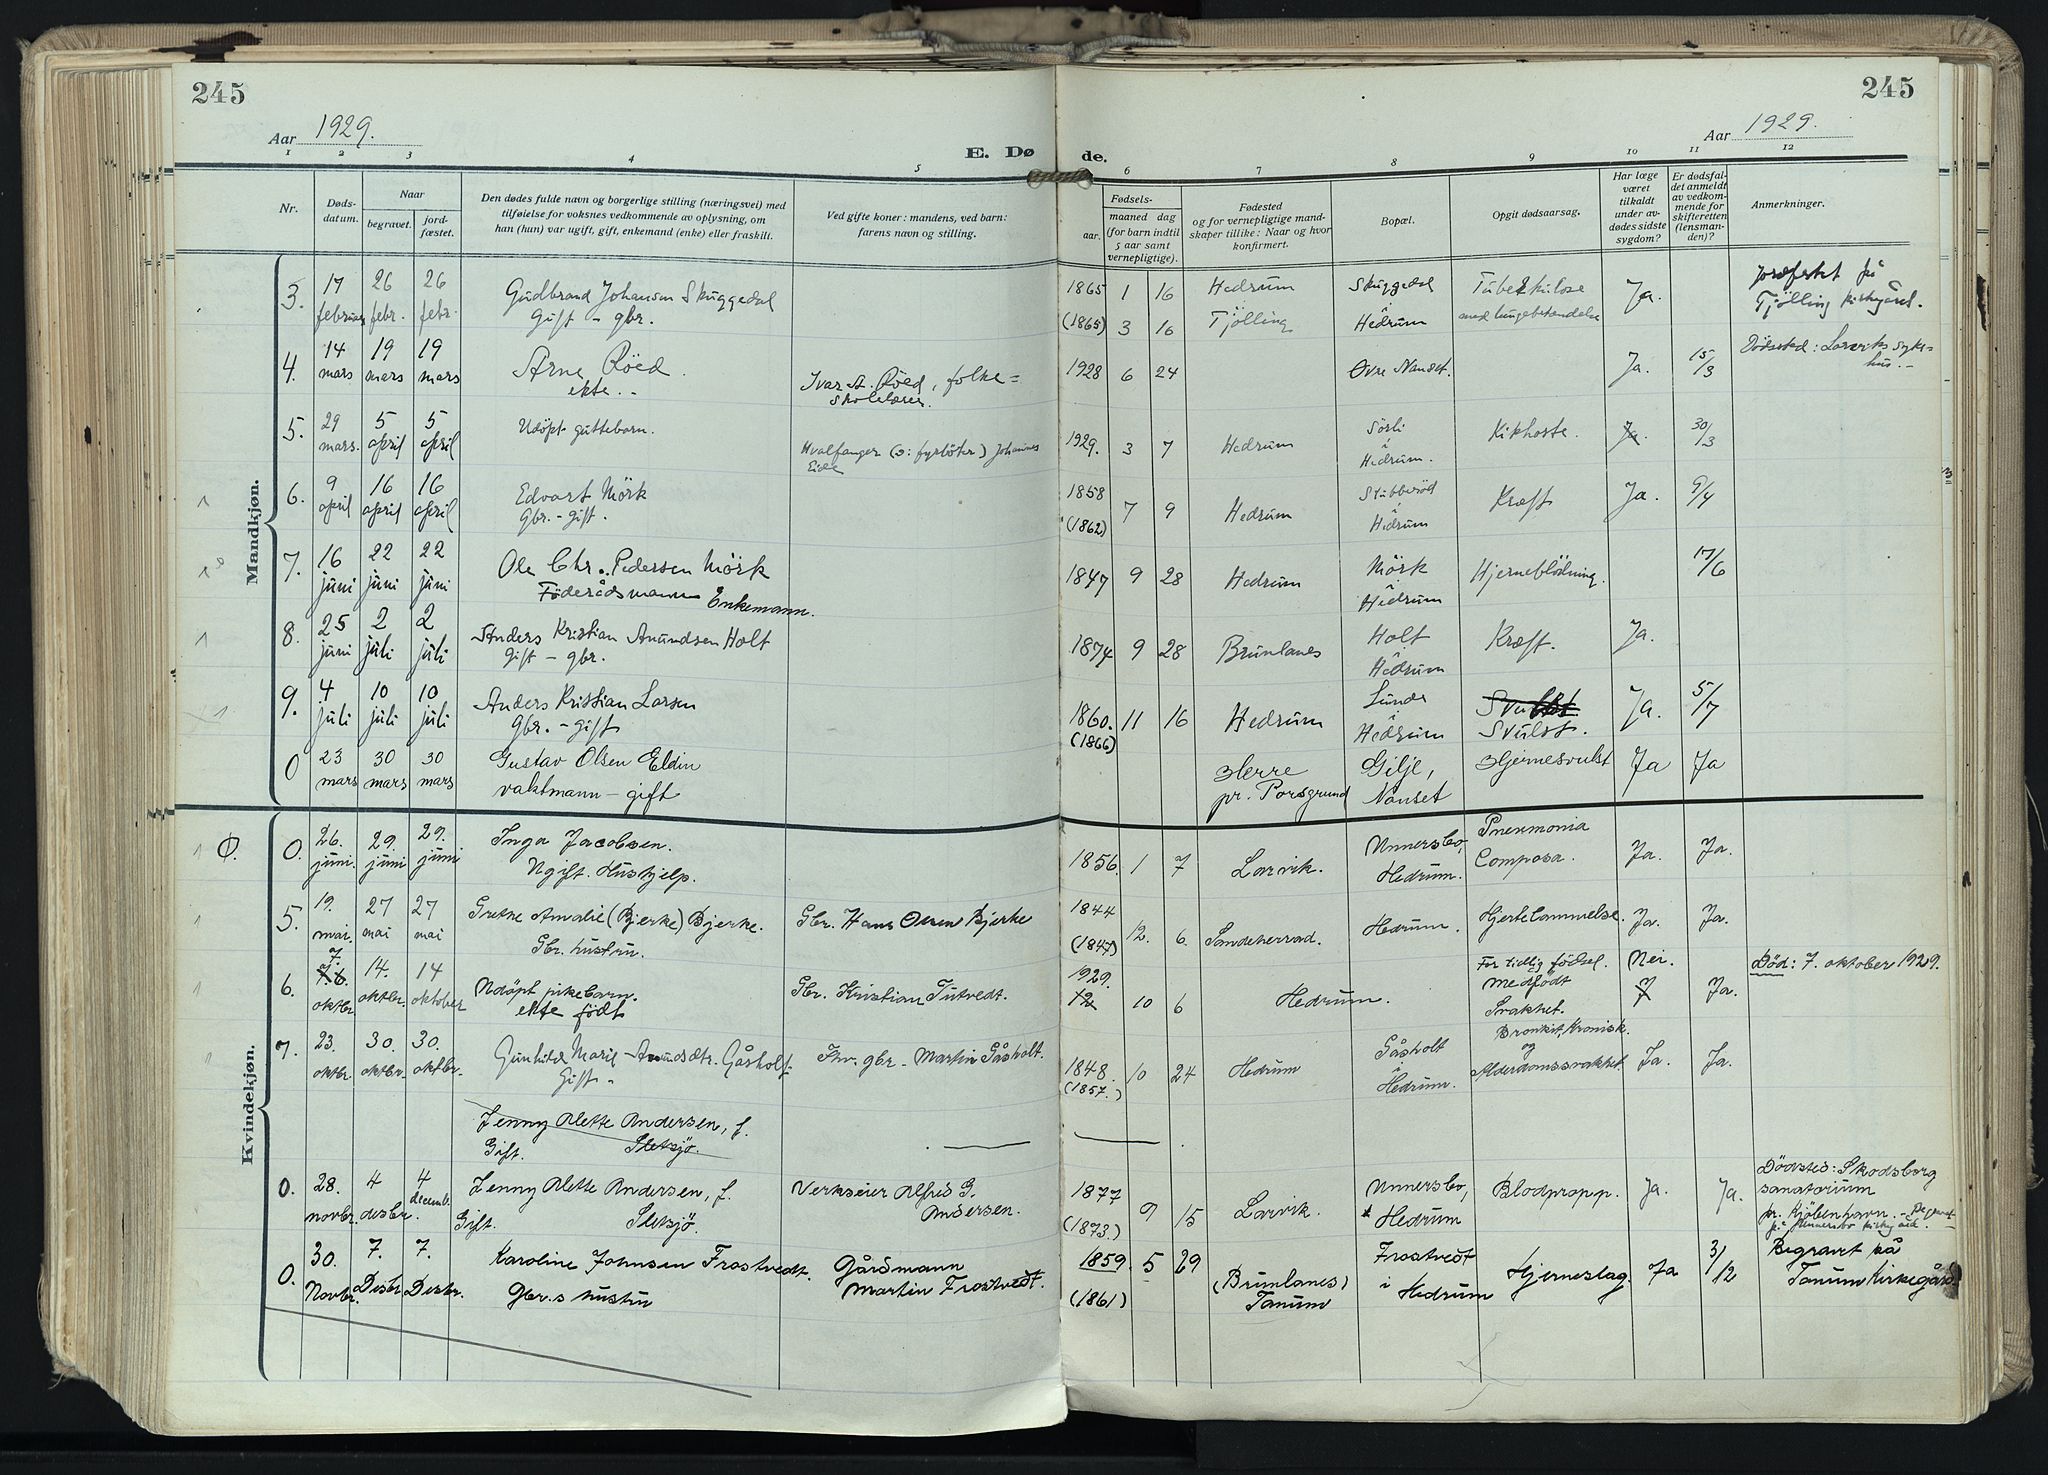 245
245
Aar 1929.
Aar 1929.
1 2 3 4 5 6 7 8 9 10 11 12
E. Dø de.
Nr.
Døds-
datum.
Naar
begravet.
jord-
fæstet.
Den dødes fulde navn og borgerlige stilling (næringsvei) med
tilføielse for voksnes vedkommende av oplysning, om
han (hun) var ugift, gift, enkemand (enke) eller fraskilt.
Ved gifte koner: mandens, ved barn:
farens navn og stilling.
Fødsels-
aar.
maaned dag
(for barn indtil
5 aar samt
vernepligtige).
Fødested
og for vernepligtige mand-
skaper tillike: Naar og hvor
konfirmert.
Bopæl.
Opgit dødsaarsag.
Har læge
været
tilkaldt
under av-
dødes sidste
sygdom?
Er dødsfal-
det anmeldt
av vedkom-
mende for
skifteretten
(lensman-
den)?
Anmerkninger.
Mandkjøn.
3. 17 26 26 Gudbrand Johansen Skuggedal 1865 1 16 Hedrum Skuggedal Tuberkulose Ja. jordfestet på
februar febr. febr. Gift - gbr. (1865) 3 16 Tjölling i Hedrum med lungebetendelse Tjölling kirkegård.
4. 14 19 19 Arne Röed. Ivar A. Röed, folke= 1928 6 24 Øvre Nanset. Ja. 15/3 Dödssted: Larviks syke-
mars mars mars ekte. - skolelærer. hus. -
5. 29 5 5 Udöpt guttebarn. Hvalfanger (ɔ: fyrböter) Johannes 1929. 3 7 Hedrum Sörli Kikhoste. Ja. 30/3
mars. april april Eide i Hedrum.
6. 9 16 16 Edvart Mörk 1858 7 9 Hedrum Stubberöd Kræft Ja. 9/4
april april april Gbr. - gift. (1862) i Hedrum
7. 16 22 22 Ole Chr. Pedersen Mörk 1847 9 28 Hedrum Mörk Hjerneblödning. 17/6
juni juni juni Föderådsmann Enkemann. i Hedrum
8. 25 2 2 Anders Kristian Amundsen Holt 1874 9 28 Brunlanes Holt Kræft. Ja.
juni juli juli Gift - gbr. i Hedrum
9. 4 10 10 Anders Kristian Larsen 1860. 11 16 Hedrum Lunde Svulst Ja. 5/7
juli juli juli Gbr. - gift (1866) i Hedrum Svulst.
0 23 30 30 Gustav Olsen Eldin Herre Gilje, Hjernesvulst Ja Ja
mars mars mars vaktmann - gift pr. Porsgrund Nanset
Kvindekjøn.
Ø. 0. 26. 29. 29. Inga Jacobsen. 1856. 1 7 Larvik. Unnersbo, Pneumonia Ja. Ja.
juni. juni juni Ugift. Hushjelp. Hedrum. Composa.
5. 19. 27 27 Grethe Amalie (Bjerke) Bjerke. Gbr. Hans Olsen Bjerke 1844 12. 6. Sandeherrad. Hedrum. Hjertelammelse. Ja. Ja.
mai. mai mai Gbr. hustru. (1847)
6. 7. 14. 14 Udöpt pikebarn. Gbr. Kristian Tutvedt. 1929. 10 6 Hedrum. For tidlig födsel. Nei. Ja. Död: 7. oktober 1929.
oktbr oktbr. oktober ekte födt 12 Medfödt Svakhet.
7. 23. 30. 30. Gunhild Marie Amundsdtr. Gåsholt Fhv. gbr. - Martin Gåsholt. 1848. 10 24 Hedrum Gåsholt Bronkit, Kronisk Ja. Ja.
oktbr. oktbr. oktbr. Gift - (1857.) i Hedrum. og Alderdomssvakhet
Jenny Alette Andersen, f.
Gift. Sletsjö.
0. 28. 4 4 Jenny Alette Andersen, f. Verkseier Alfred G. 1877 9 15 Larvik. Unnersbo, Blodpropp. Ja. Ja. Dödsted: Skodsborg
novbr. desbr. decemb. Gift. Sletsjö. Andersen. (1873.) Hedrum sanatorium
pr. Kjöbenhavn. -
0. 30. 7. 7. Karoline Johnsen Frostvedt. Gårdmann 1859. 5 29 (Brunlanes) Frostvedt Hjerneslag. Ja 3/12 Begravet på
Novbr. Desbr. Desbr. Gbr.s hustru Martin Frostvedt. (1861) Tanum i Hedrum Tanum Kirkegård